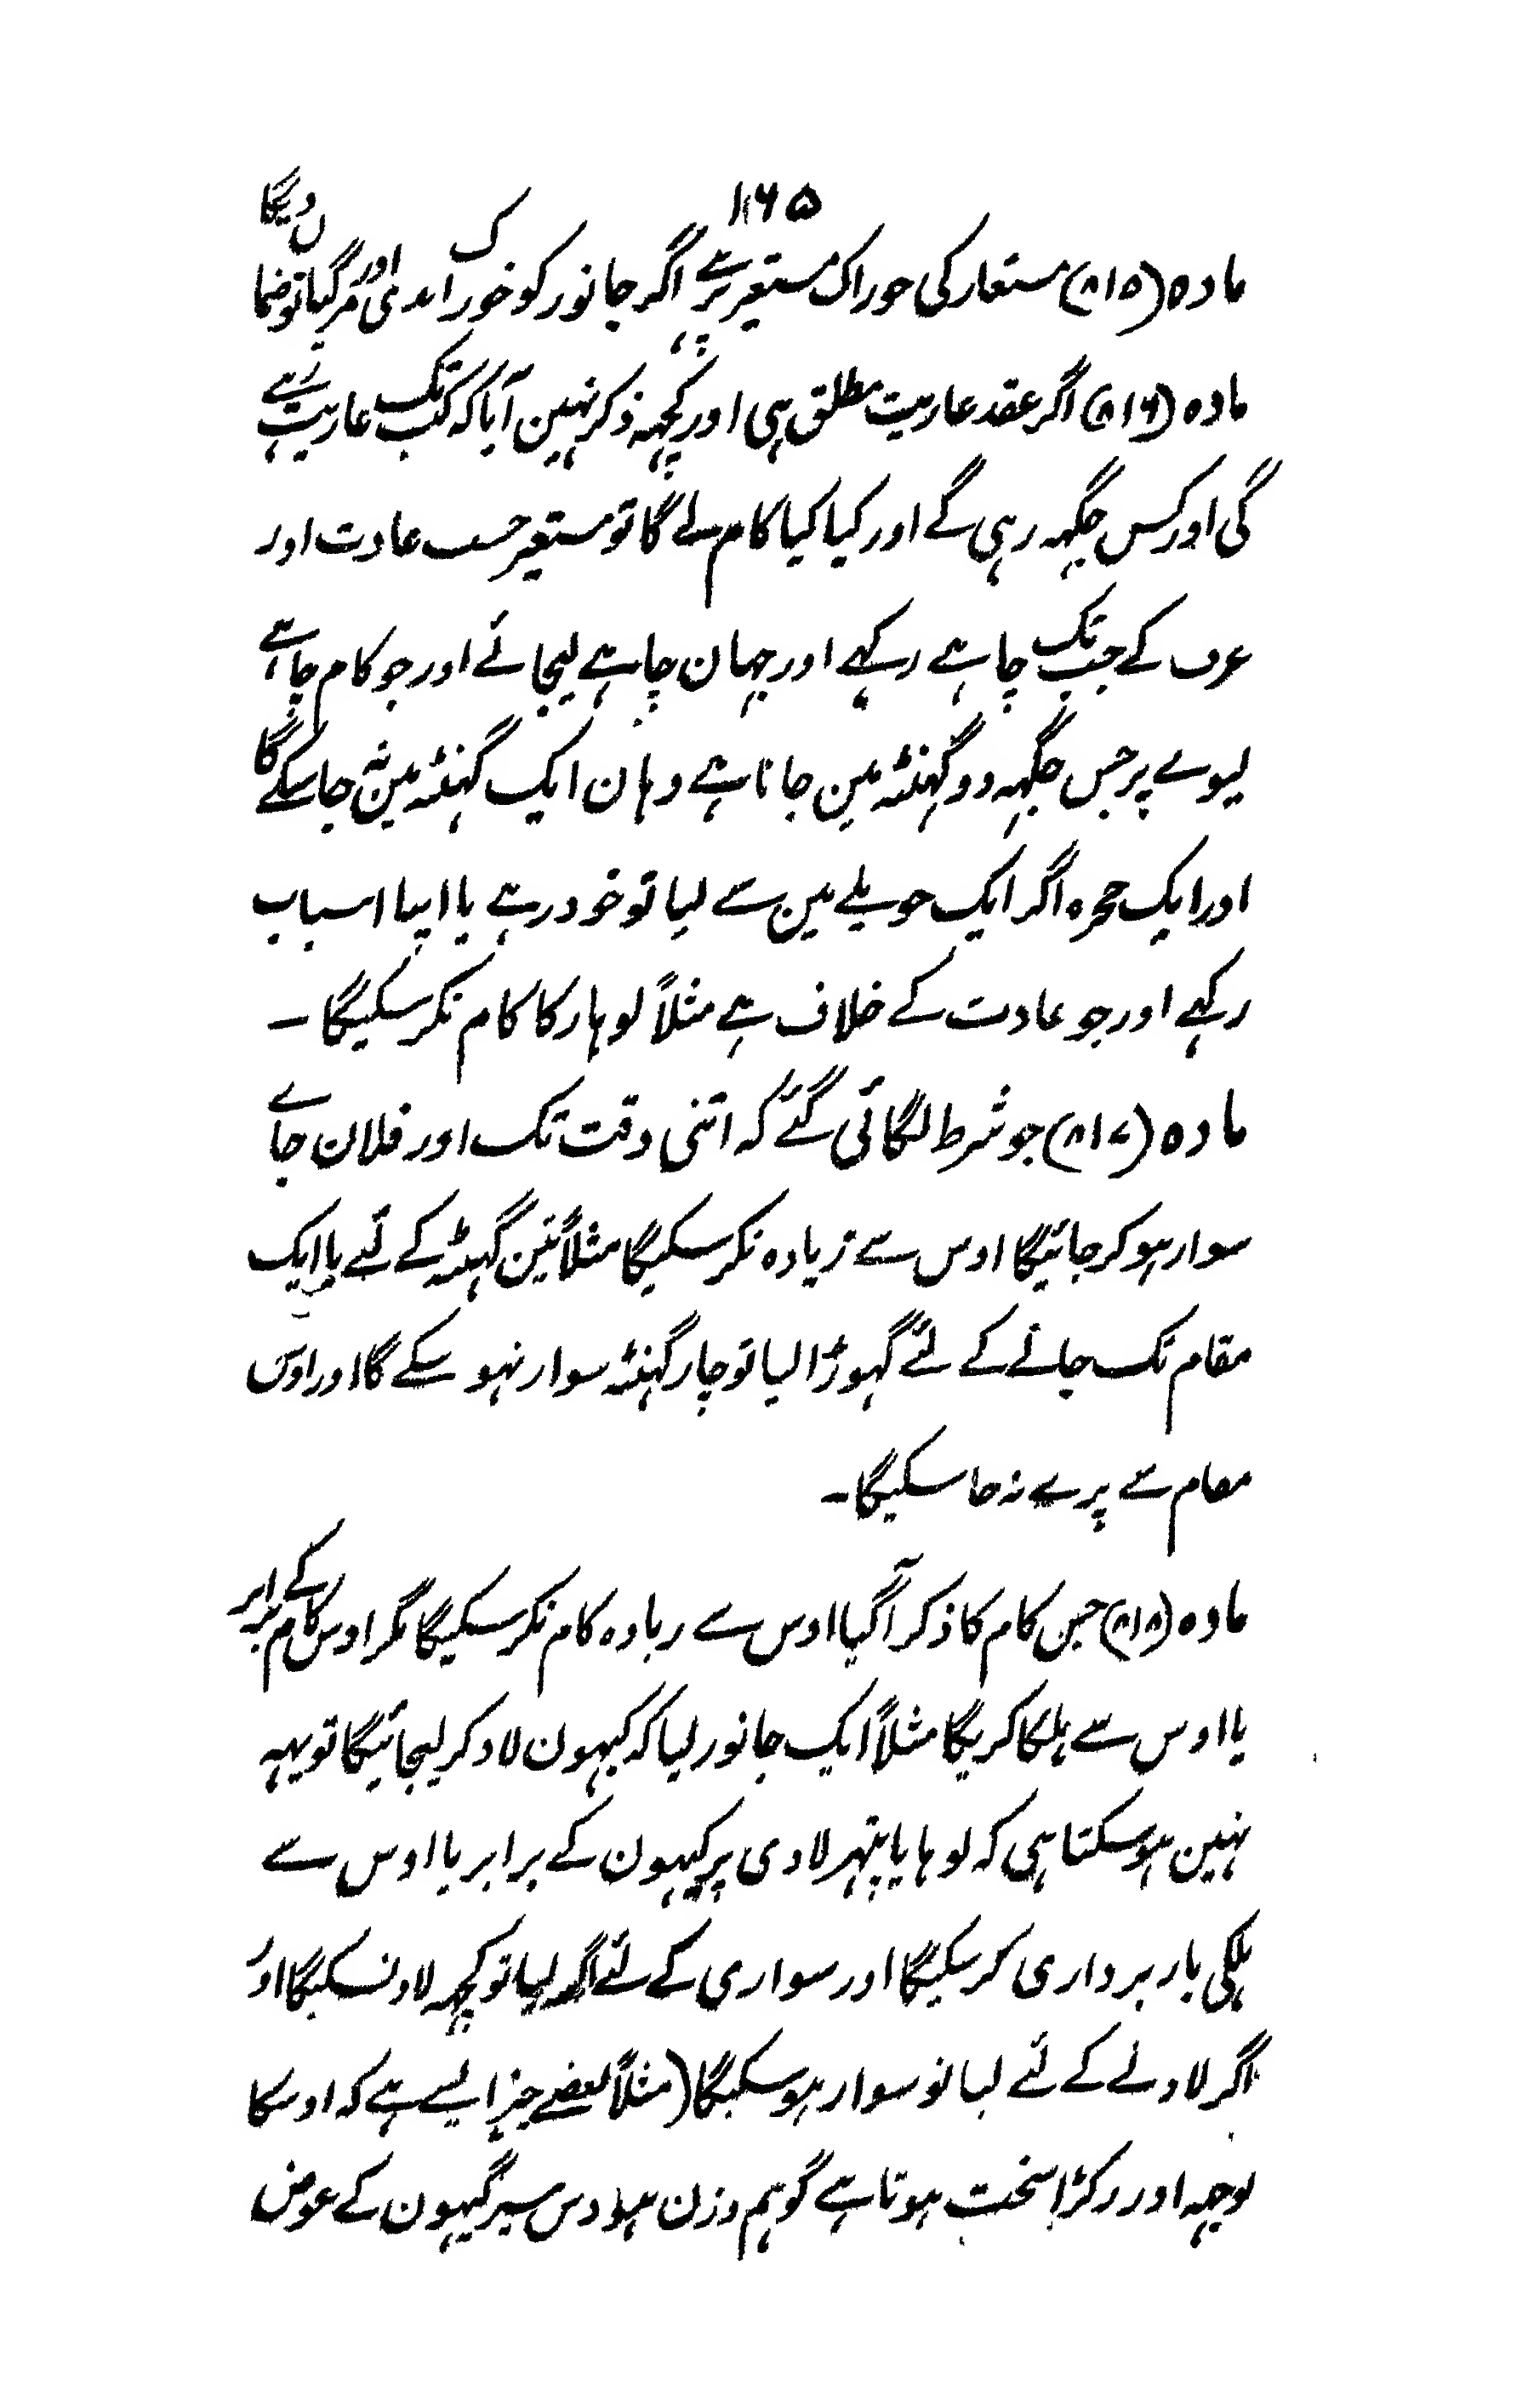 ۱۶۵
مادہ (۸۱۵) مستعار کی خوراک مستعیر پر ہے اگر جانور کو خوراک ندی اور مر گیا تو ضمان دیگا
مادہ (۸۱۶) اگر عقد عاریت مطلق ہی اور کچہہ ذکر نہین آیا کہ کب تک عاریت رہے
گی اور کس جگہہ رہی گے اور کیا کیا کام لے گا تو مستعیر حسب عادت اور
عرف کے جب تک چاہے رکہے اور جہان چاہے لیجائے اور جو کام چاہے
لیوے پر جس جگہہ دو گہنٹہ مین جاتا ہے وہان ایک گہنٹہ مین نہ جا سکے گا
اور ایک حجرہ اگر ایک حویلے مین سے لیا تو خود رہے یا اپنا اسباب
رکہے اور جو عادت کے خلاف ہے مثلاً لوہار کا کام نکر سکیگا ۔
مادہ (۸۱۷) جو شرط لگائی گئے کہ اتنی وقت تک اور فلان جاے
سوار ہو کر جائیگا اوس سے زیادہ نکر سکیگا مثلاً تین گہنٹہ کے لئے یا ایک
مقام تک جانے کے لئے گہوڑا لیا تو چار گہنٹہ سوار نہو سکے گا اور اوس
مقام سے پرے نہ جا سکیگا ۔
مادہ (۸۱۸) جس کام کا ذکر آ گیا اوس سے زیادہ کام نکر سکیگا مگر اوس کام کے برابر
یا اوس سے ہلکا کریگا مثلاً ایک جانور لیا کہ گیہون لاد کر لیجائیگا تو یہہ
نہین ہو سکتا ہی کہ لوہا یا پتہر لادی پر گیہون کے برابر یا اوس سے
ہلکی بار برداری کر سکیگا اور سواری کے لئے اگر لیا تو کچہہ لاد نسکیگا اور
اگر لادنے کے لئے لیا تو سوار ہو سکیگا (مثلاً بعضے چیز ایسے ہے کہ اوسکا
بوجہہ اور رکڑا سخت ہوتا ہے گو ہم وزن ہو دس سیر گیہون کے عوض